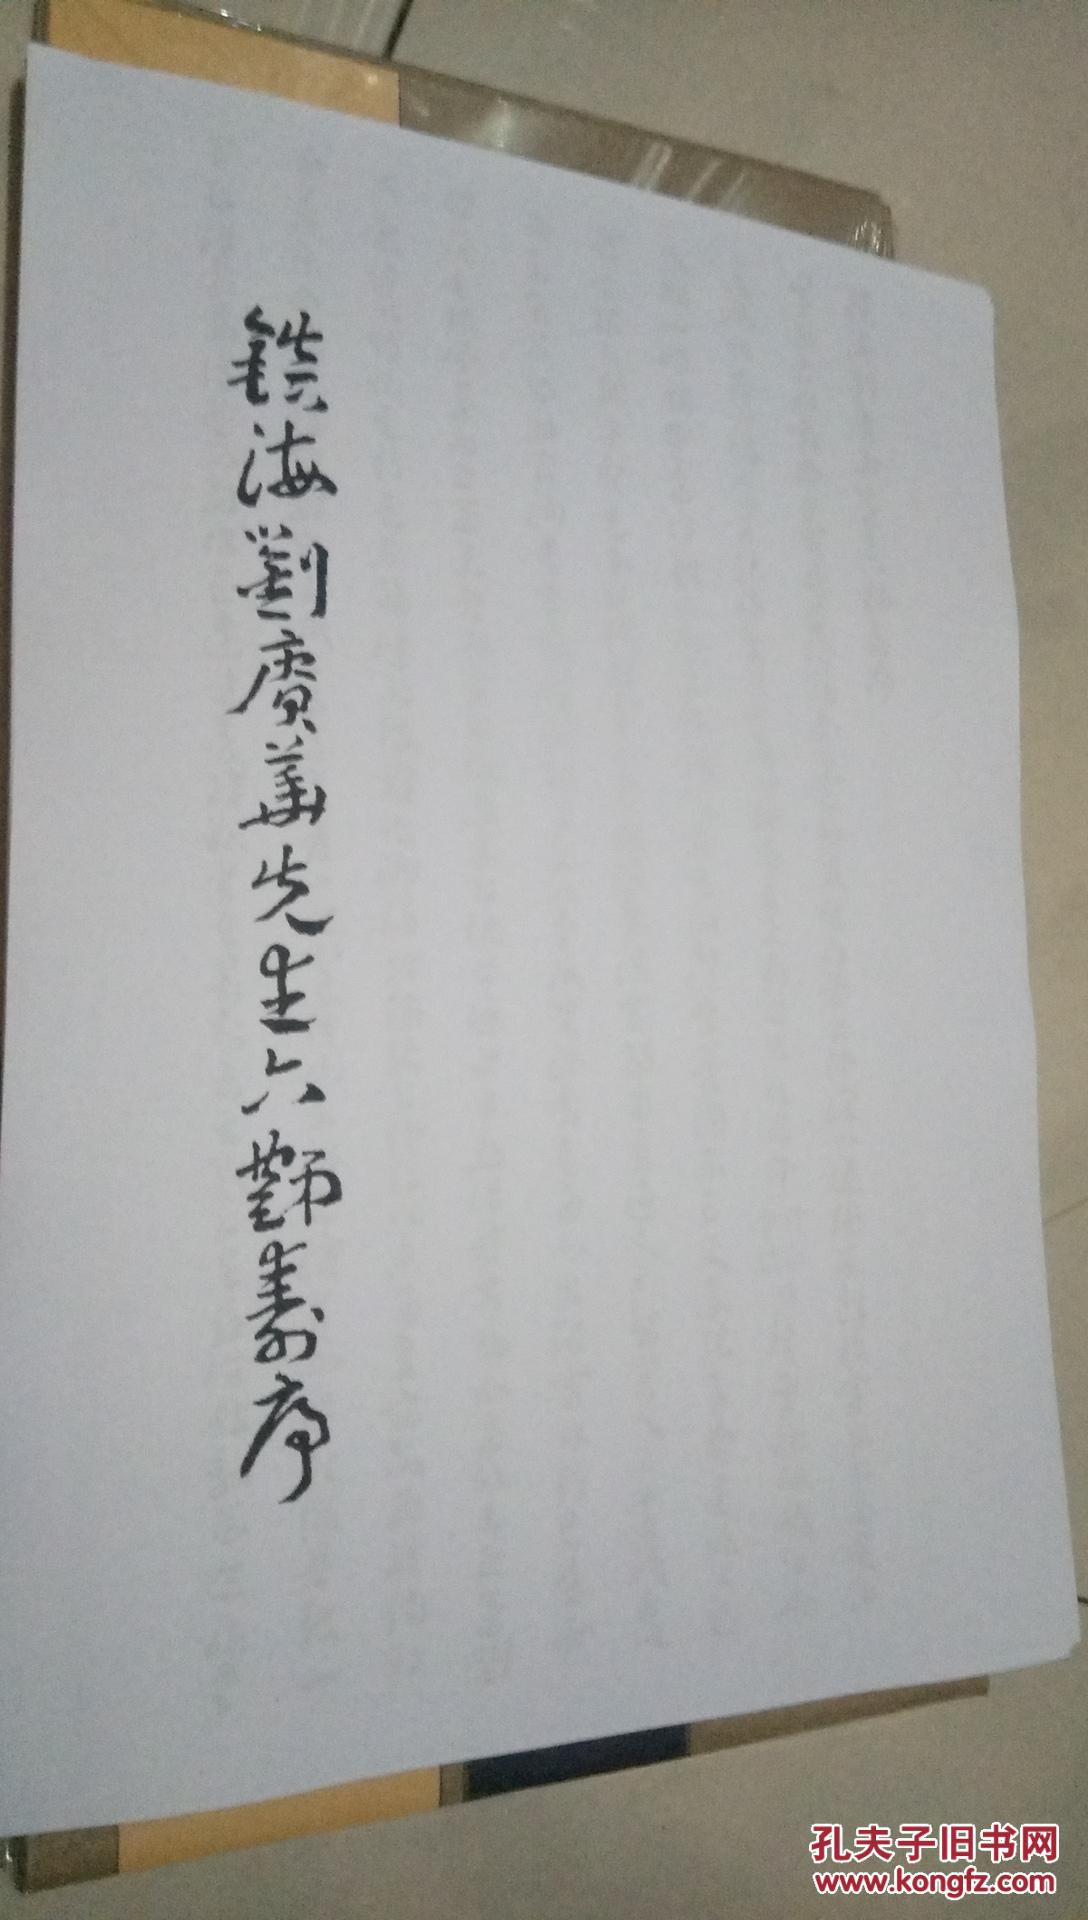 鎮海劉賡華先生六豑壽序
孔夫子旧书网
www.kongfz.com